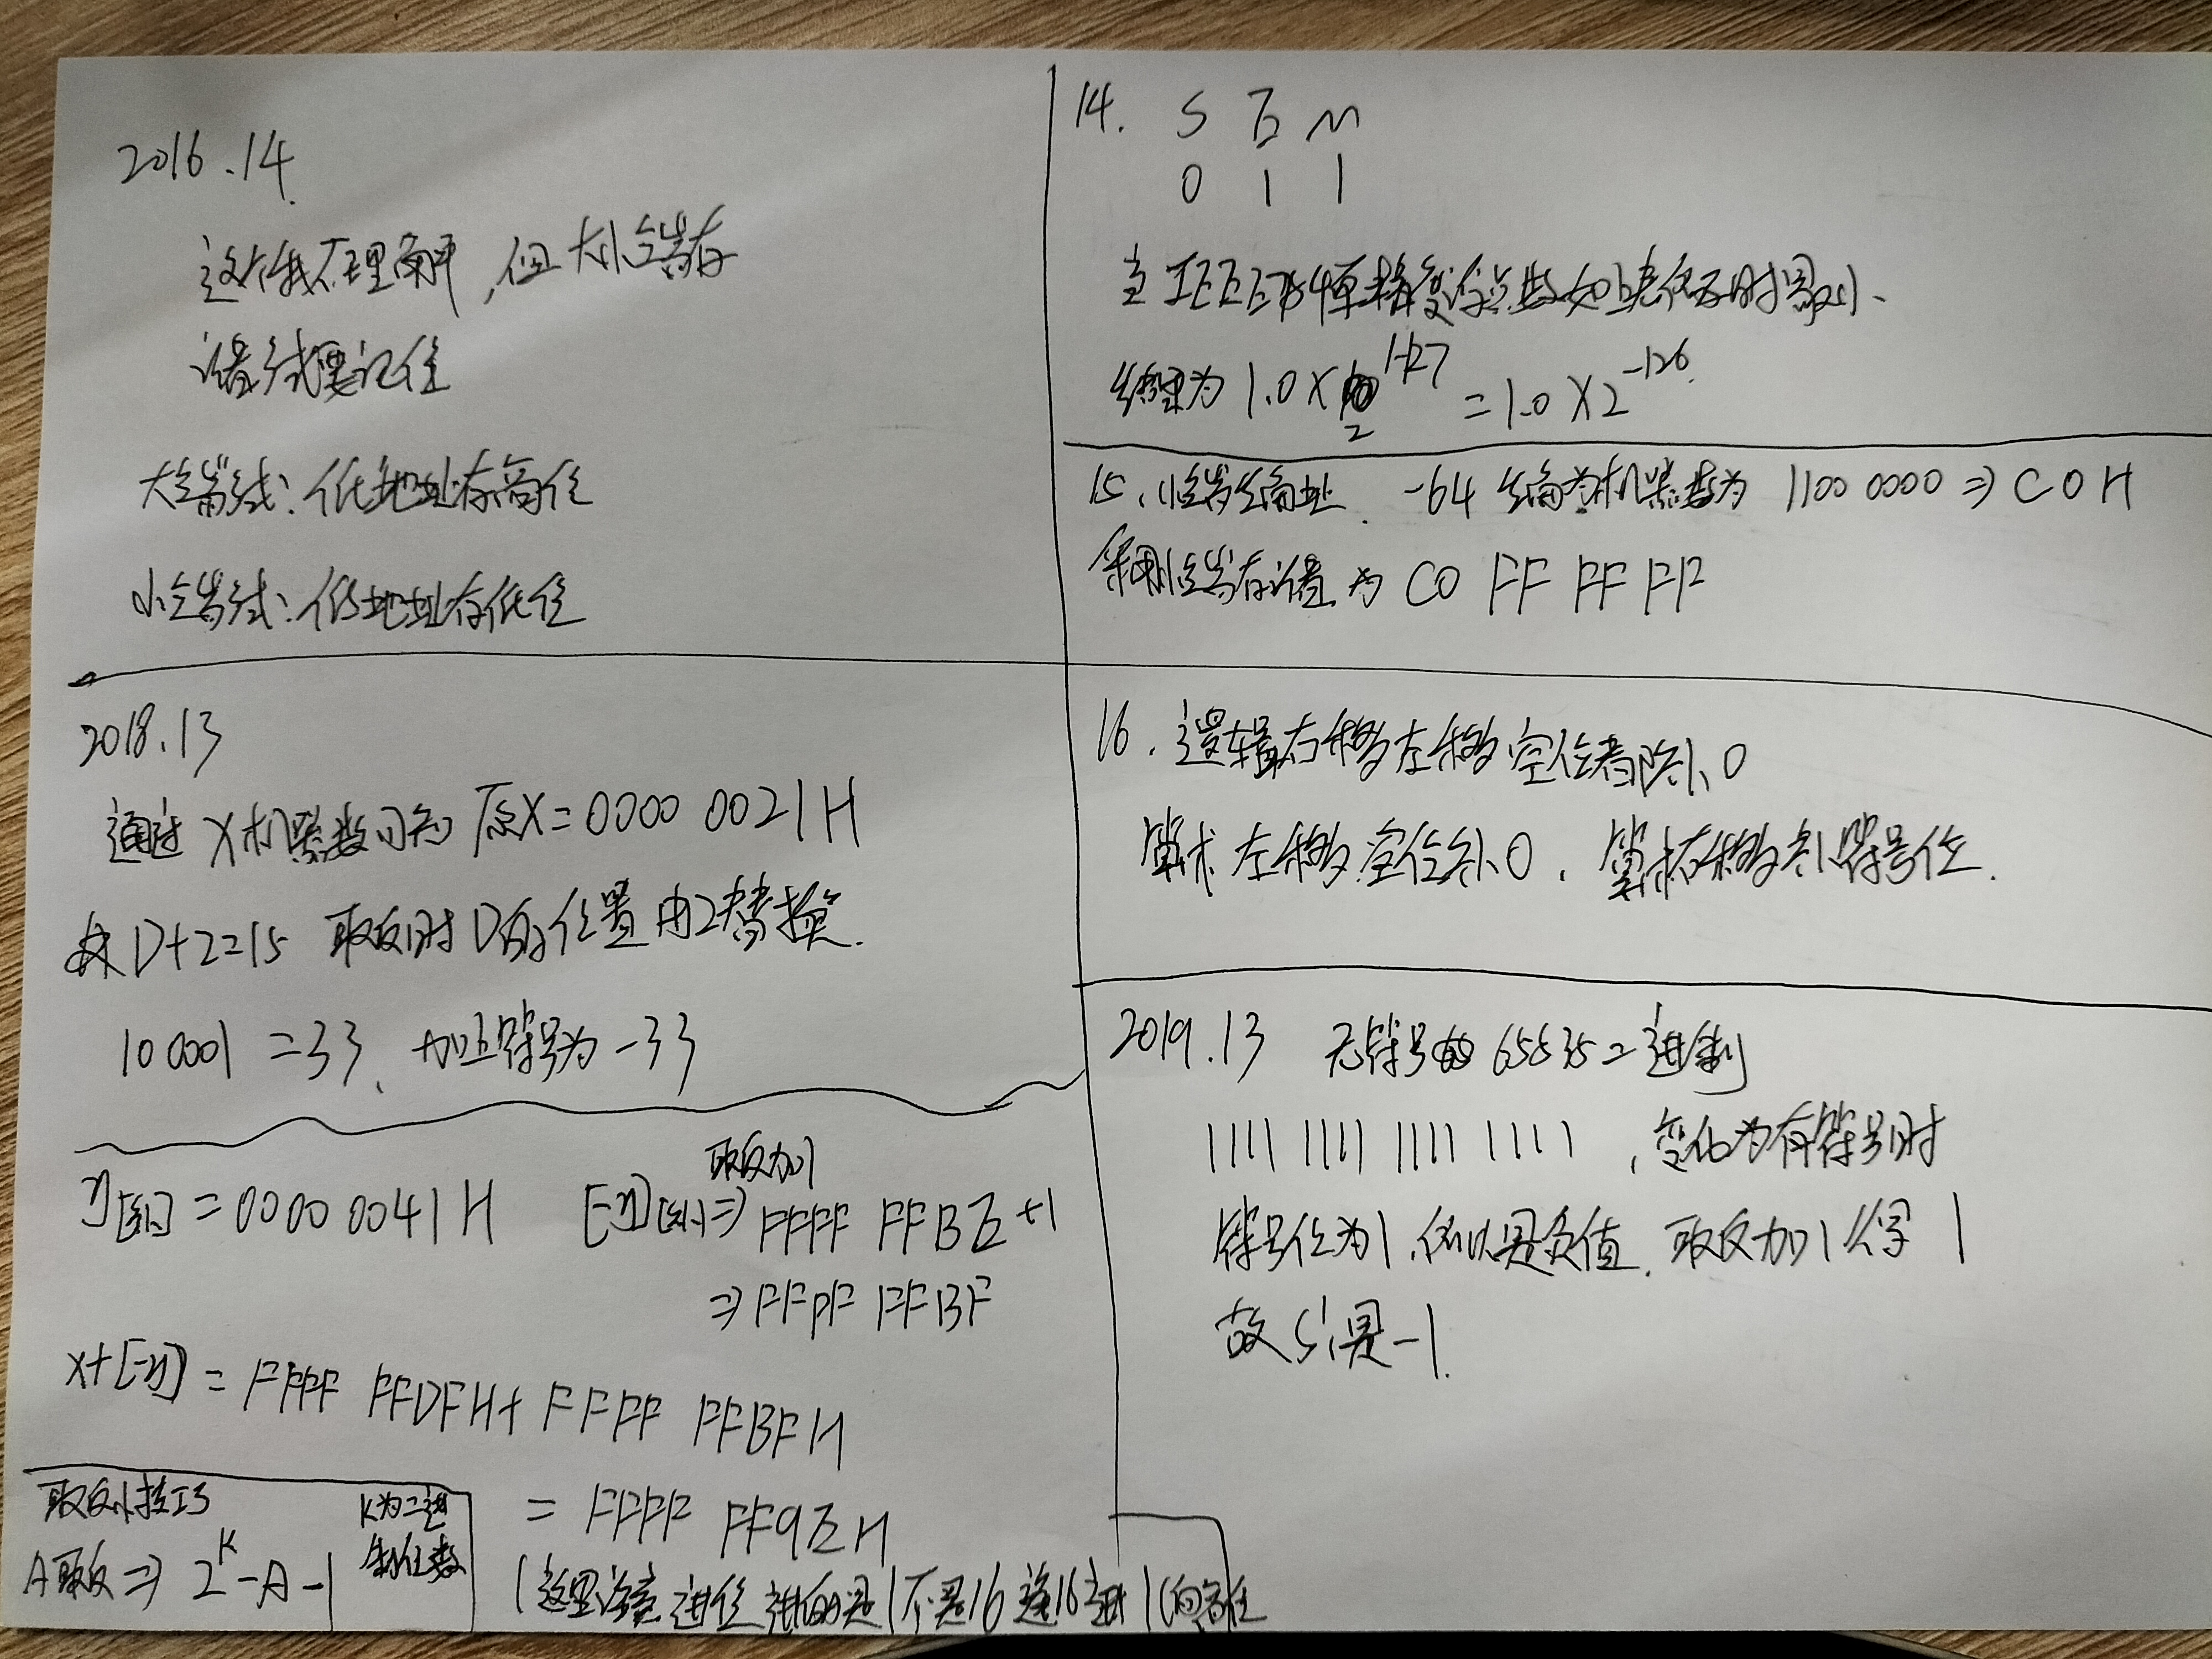 2016.14
这个我不理解,但大小端存
储方式要记住
大端方式:低地址存高位
小端方式:低地址存低位
2018.13
通过X机器数可知 原X=0000 0021H
D+2=15 取反时D的位置由2替换.
10 0001 =33、加上符号为-33
y[补]=0000 0041H [-y][补]⇒ FFFF FFBE+1
取反加1
⇒FFFF FFBF
x+[-y] = FFFF FFDFH+ FFFF FFBFH
= FFFF FF9EH
(这里注意 进位 进的是1不是16 逢16进1向高位
取反小技巧
A取反⇒ 2^K-A-1
K为二进
制位数
14. S E M
0 1 1
IEEE754单精度浮点数
结果为 1.0×2^1-127 =1.0×2^-126
15. 小端 -64 机器数为 1100 0000 ⇒ C0H
采用小端存储 为 C0 FF FF FF
16. 逻辑右移左移空位都补0
算术左移空位补0. 算术右移补符号位.
2019.13 无符号的65535二进制
1111 1111 1111 1111 ,变化为有符号时
符号位为1.所以是负值. 取反加1得 1
故si是-1.